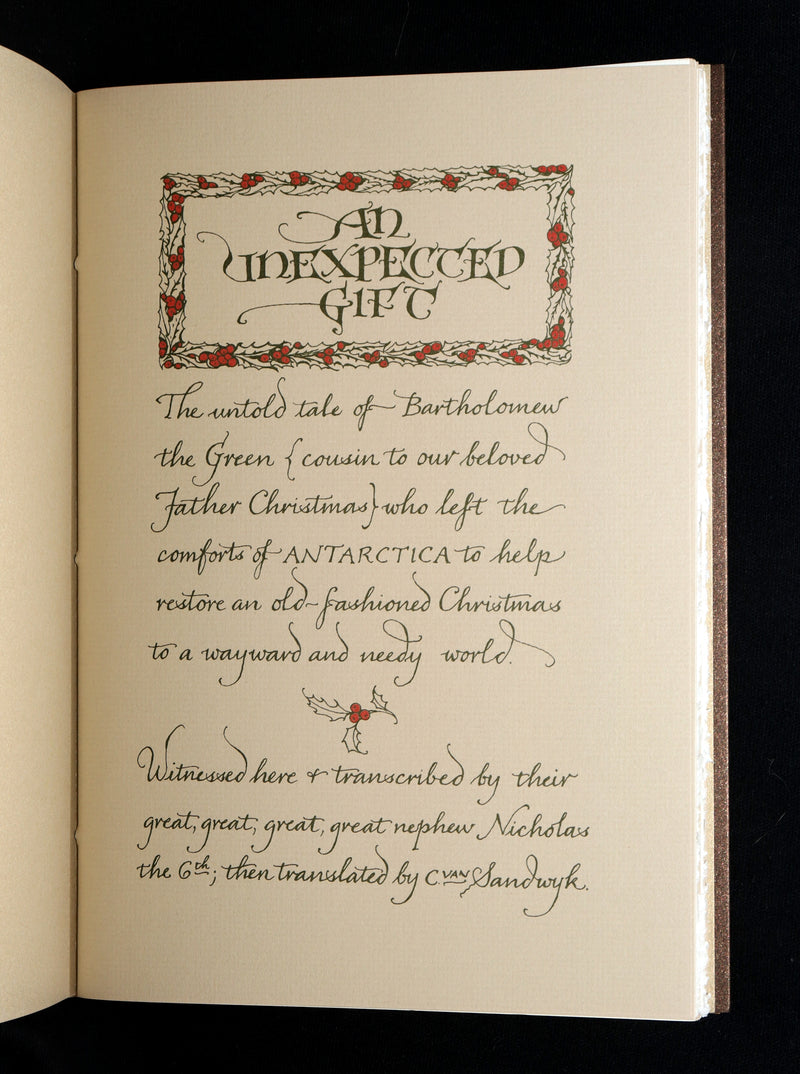 AN
UNEXPECTED
GIFT
The untold tale of Bartholomew
the Green {cousin to our beloved
Father Christmas} who left the
comforts of ANTARCTICA to help
restore an old-fashioned Christmas
to a wayward and needy world.
Witnessed here & transcribed by their
great, great, great, great nephew Nicholas
the 6th; then translated by C. VAN Sandwyk.